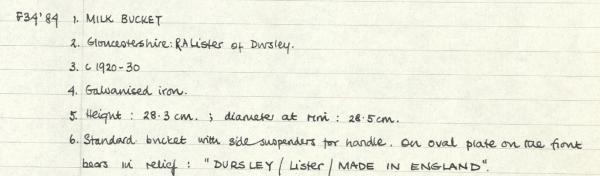 F34'84 1. MILK BUCKET
2. Gloucestershire: RA Lister of Dursley.
3. c 1920-30
4. Galvanised iron.
5. Height : 28.3 cm. ; diameter at rim : 28.5cm.
6. Standard bucket with side suspenders for handle. On oval plate on the front
bears in relief : "DURSLEY / Lister / MADE IN ENGLAND".